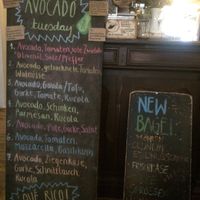 AVOCADO
tuesday
1. Avocado, Tomaten, rote Zwiebeln
Olivenöl, Salz/Pfeffer
2. Avocado, getrocknete Tomaten,
3. Avocado, Gouda/Tofu,
Gurke, Tomate, Rucola
4. Avocado, Schinken,
Parmesan, Rucola
5. Avocado, Pute, Gurke, Salat
6. Avocado, Tomaten,
Mozzarella, Basilikum
7. Avocado, Ziegenkäse,
Gurke, Schnittlauch,
Rucola
QUE RICO!
NEW
BAGEL
FRISCHKÄSE